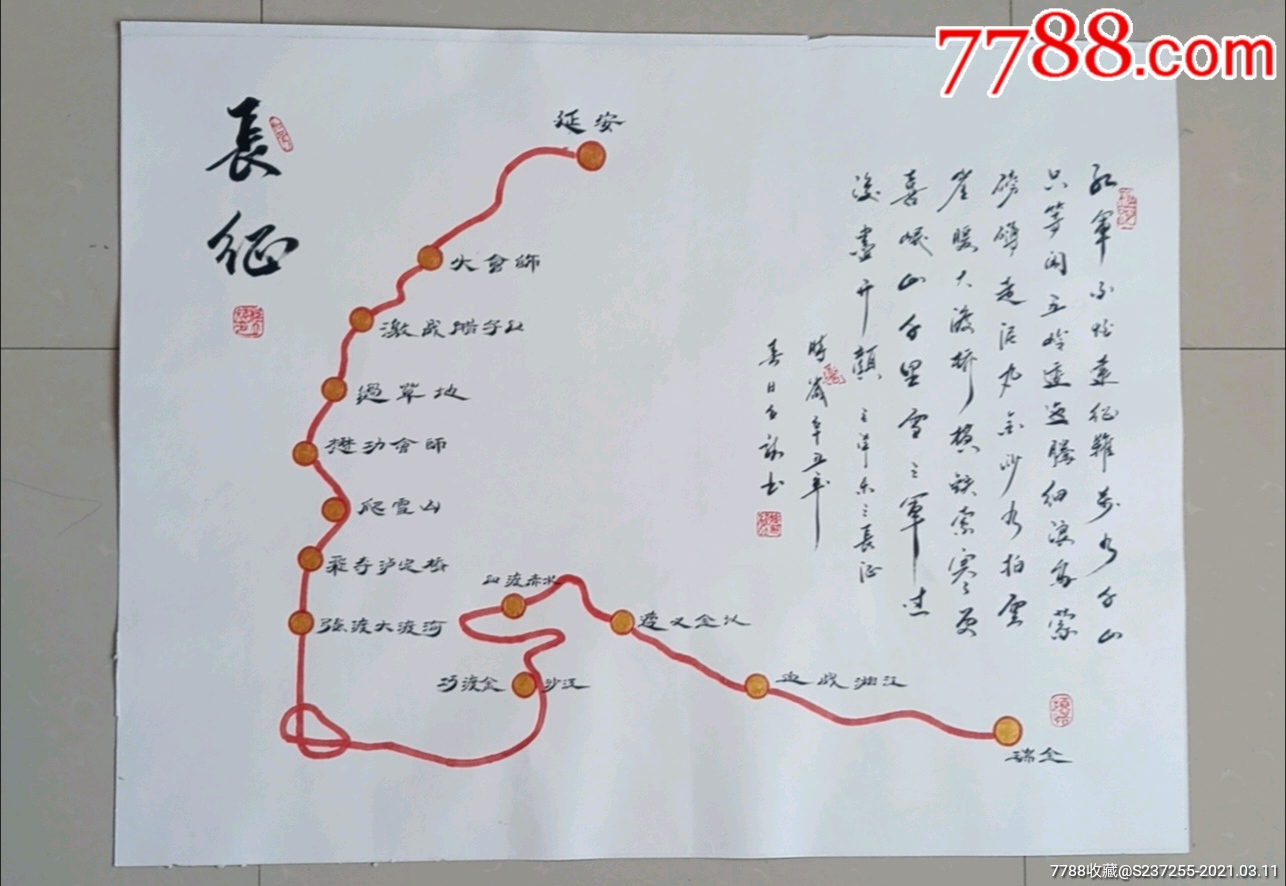 7788.com
長征
延安
大會師
激战腊子口
過草地
懋功會師
爬雪山
飛夺泸定橋
强渡大渡河
四渡赤水
遵义会议
巧渡金沙江
血战湘江
瑞金
红軍不怕遠征難萬水千山
只等闲五岭逶迤腾细浪乌蒙
磅礴走泥丸金沙水拍雲
崖暖大渡桥横铁索寒更
喜岷山千里雪三軍过
後盡开顏毛泽东之長征
時歲辛丑年
春日
7788收藏@S237255-2021.03.11